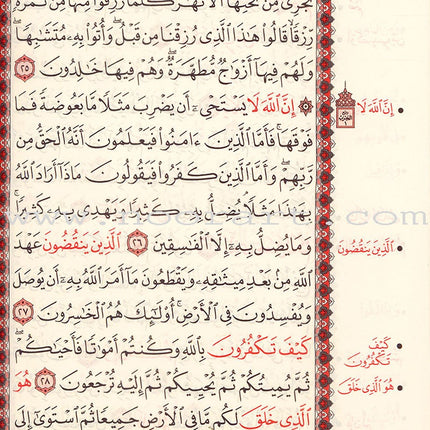 تَجْرِى مِن تَحْتِهَا ٱلْأَنْهَٰرُ كُلَّمَا رُزِقُوا۟ مِنْهَا مِن ثَمَرَةٍ
رِّزْقًا قَالُوا۟ هَٰذَا ٱلَّذِى رُزِقْنَا مِن قَبْلُ وَأُتُوا۟ بِهِۦ مُتَشَٰبِهًا
وَلَهُمْ فِيهَآ أَزْوَٰجٌ مُّطَهَّرَةٌ وَهُمْ فِيهَا خَٰلِدُونَ ٢٥
إِنَّ ٱللَّهَ لَا يَسْتَحْىِۦٓ أَن يَضْرِبَ مَثَلًا مَّا بَعُوضَةً فَمَا
إِنَّ ٱللَّهَ لَا
فَوْقَهَا فَأَمَّا ٱلَّذِينَ ءَامَنُوا۟ فَيَعْلَمُونَ أَنَّهُ ٱلْحَقُّ مِن
رَّبِّهِمْ وَأَمَّا ٱلَّذِينَ كَفَرُوا۟ فَيَقُولُونَ مَاذَآ أَرَادَ ٱللَّهُ
بِهَٰذَا مَثَلًا يُضِلُّ بِهِۦ كَثِيرًا وَيَهْدِى بِهِۦ كَثِيرًا
وَمَا يُضِلُّ بِهِۦٓ إِلَّا ٱلْفَٰسِقِينَ ٢٦ ٱلَّذِينَ يَنقُضُونَ عَهْدَ
ٱلَّذِينَ يَنقُضُونَ
ٱللَّهِ مِنۢ بَعْدِ مِيثَٰقِهِۦ وَيَقْطَعُونَ مَآ أَمَرَ ٱللَّهُ بِهِۦٓ أَن يُوصَلَ
وَيُفْسِدُونَ فِى ٱلْأَرْضِ أُو۟لَٰٓئِكَ هُمُ ٱلْخَٰسِرُونَ ٢٧
كَيْفَ تَكْفُرُونَ بِٱللَّهِ وَكُنتُمْ أَمْوَٰتًا فَأَحْيَٰكُمْ
كَيْفَ
تَكْفُرُونَ
ثُمَّ يُمِيتُكُمْ ثُمَّ يُحْيِيكُمْ ثُمَّ إِلَيْهِ تُرْجَعُونَ ٢٨ هُوَ
هُوَ ٱلَّذِى خَلَقَ
ٱلَّذِى خَلَقَ لَكُم مَّا فِى ٱلْأَرْضِ جَمِيعًا ثُمَّ ٱسْتَوَىٰٓ إِلَى